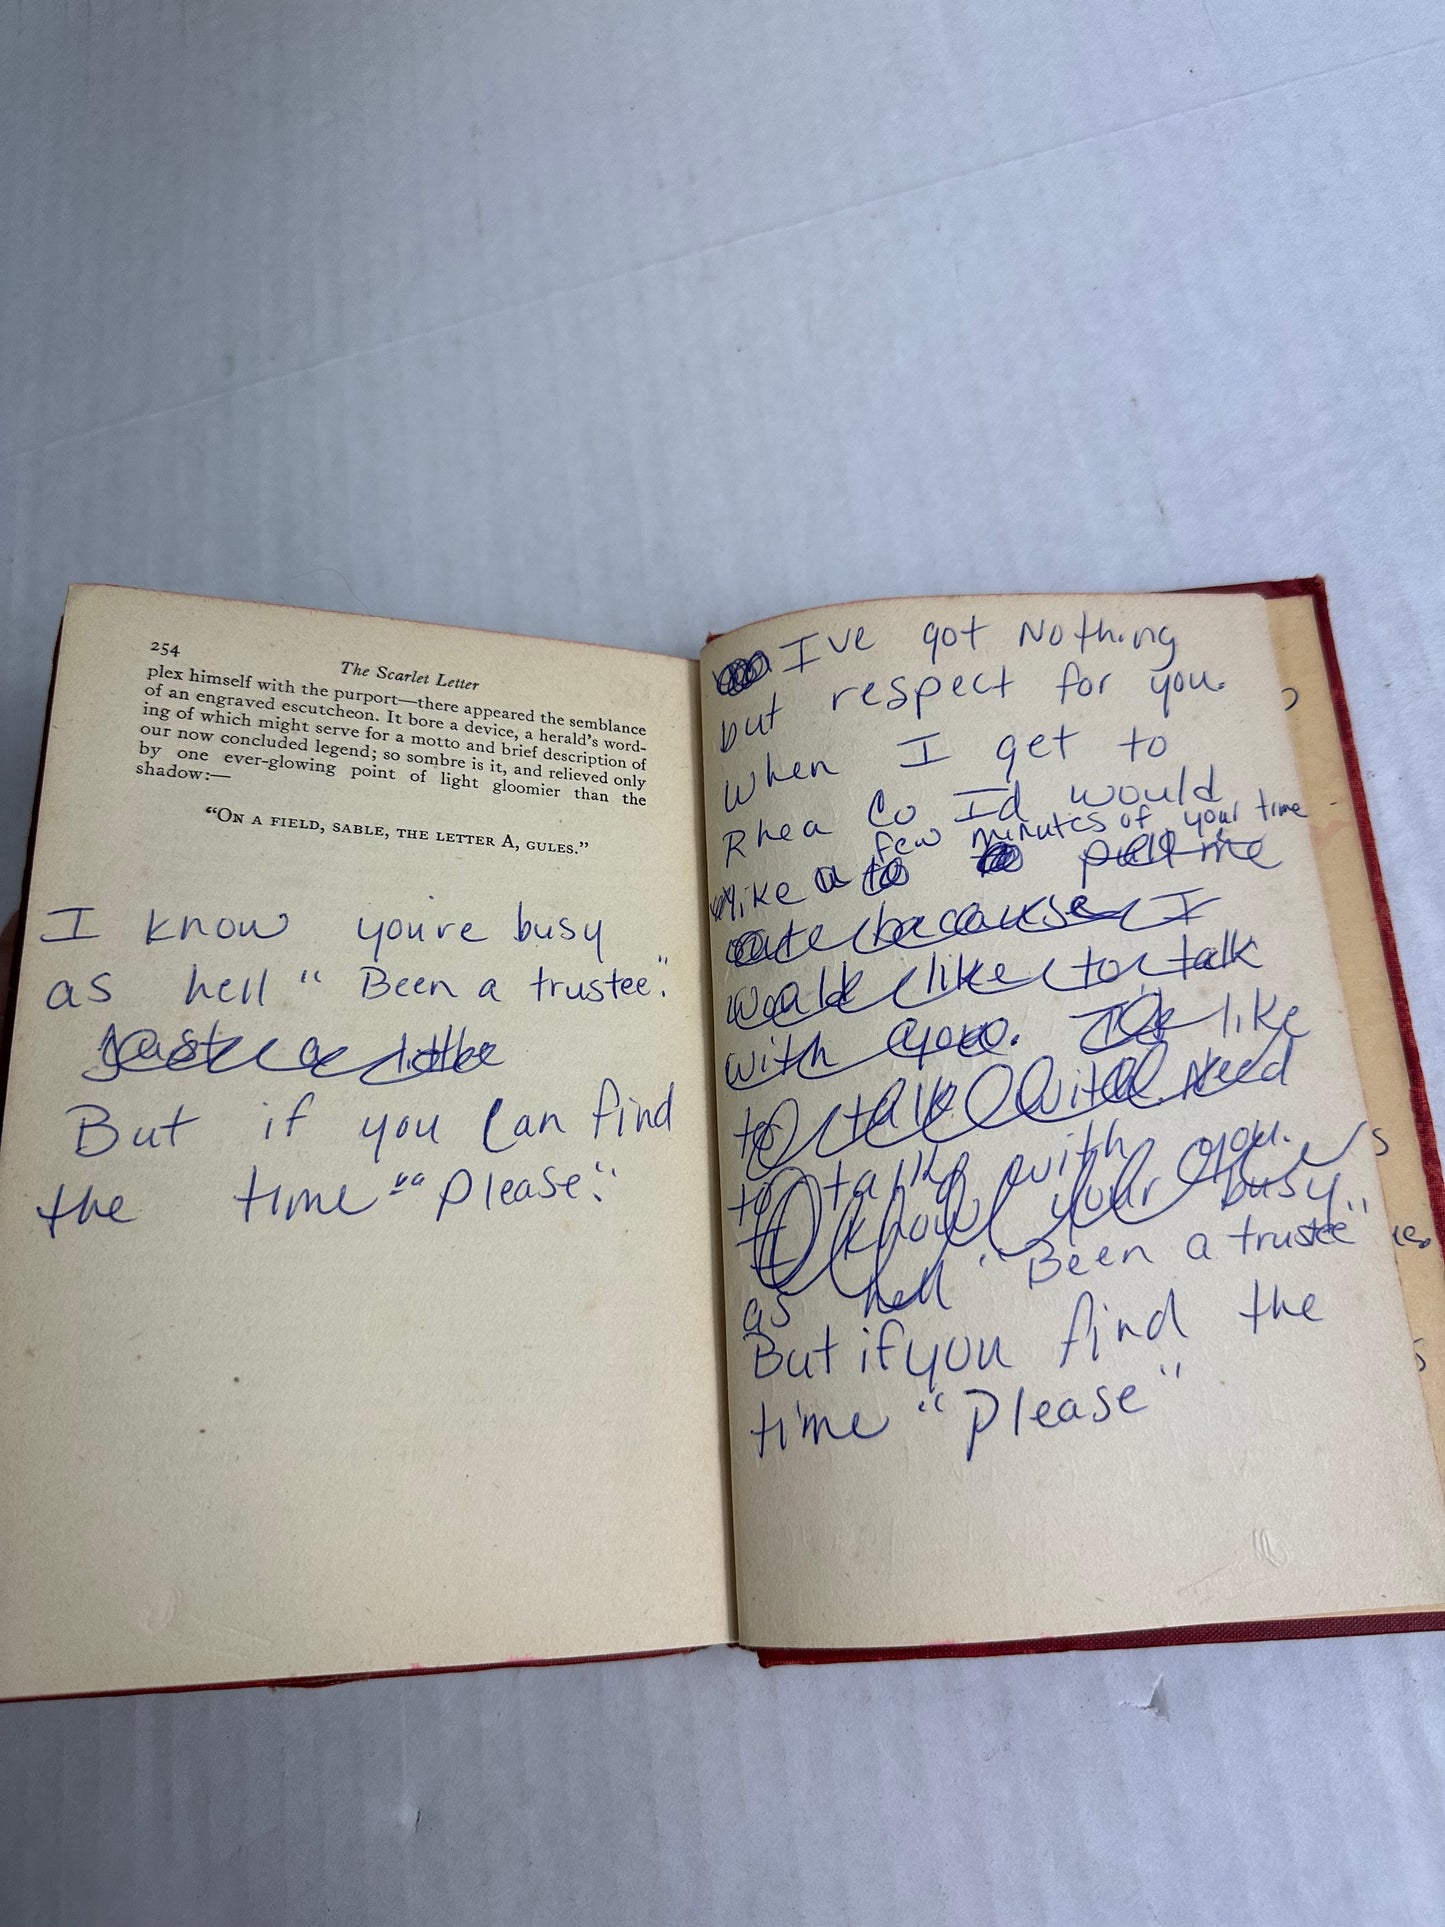 254
The Scarlet Letter
plex himself with the purport—there appeared the semblance
of an engraved escutcheon. It bore a device, a herald's word-
ing of which might serve for a motto and brief description of
our now concluded legend; so sombre is it, and relieved only
by one ever-glowing point of light gloomier than the
shadow:—
“On a field, sable, the letter A, gules.”
I know you're busy
as hell " Been a trustee."
Just a little
But if you Can find
the time "" Please."
I've got Nothing
but respect for you.
When I get to
Rhea Co I'd would
few minutes of your time
like a to pull me
out because I
would like to talk
with you. I'd like
to talk with need
to talk with you.
I know your busy
as hell " Been a trustee"
But if you find the
time "Please"